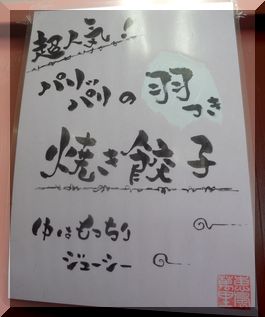 超人気!
パリッパリの羽つき
焼き餃子
中はもっちり
ジューシー